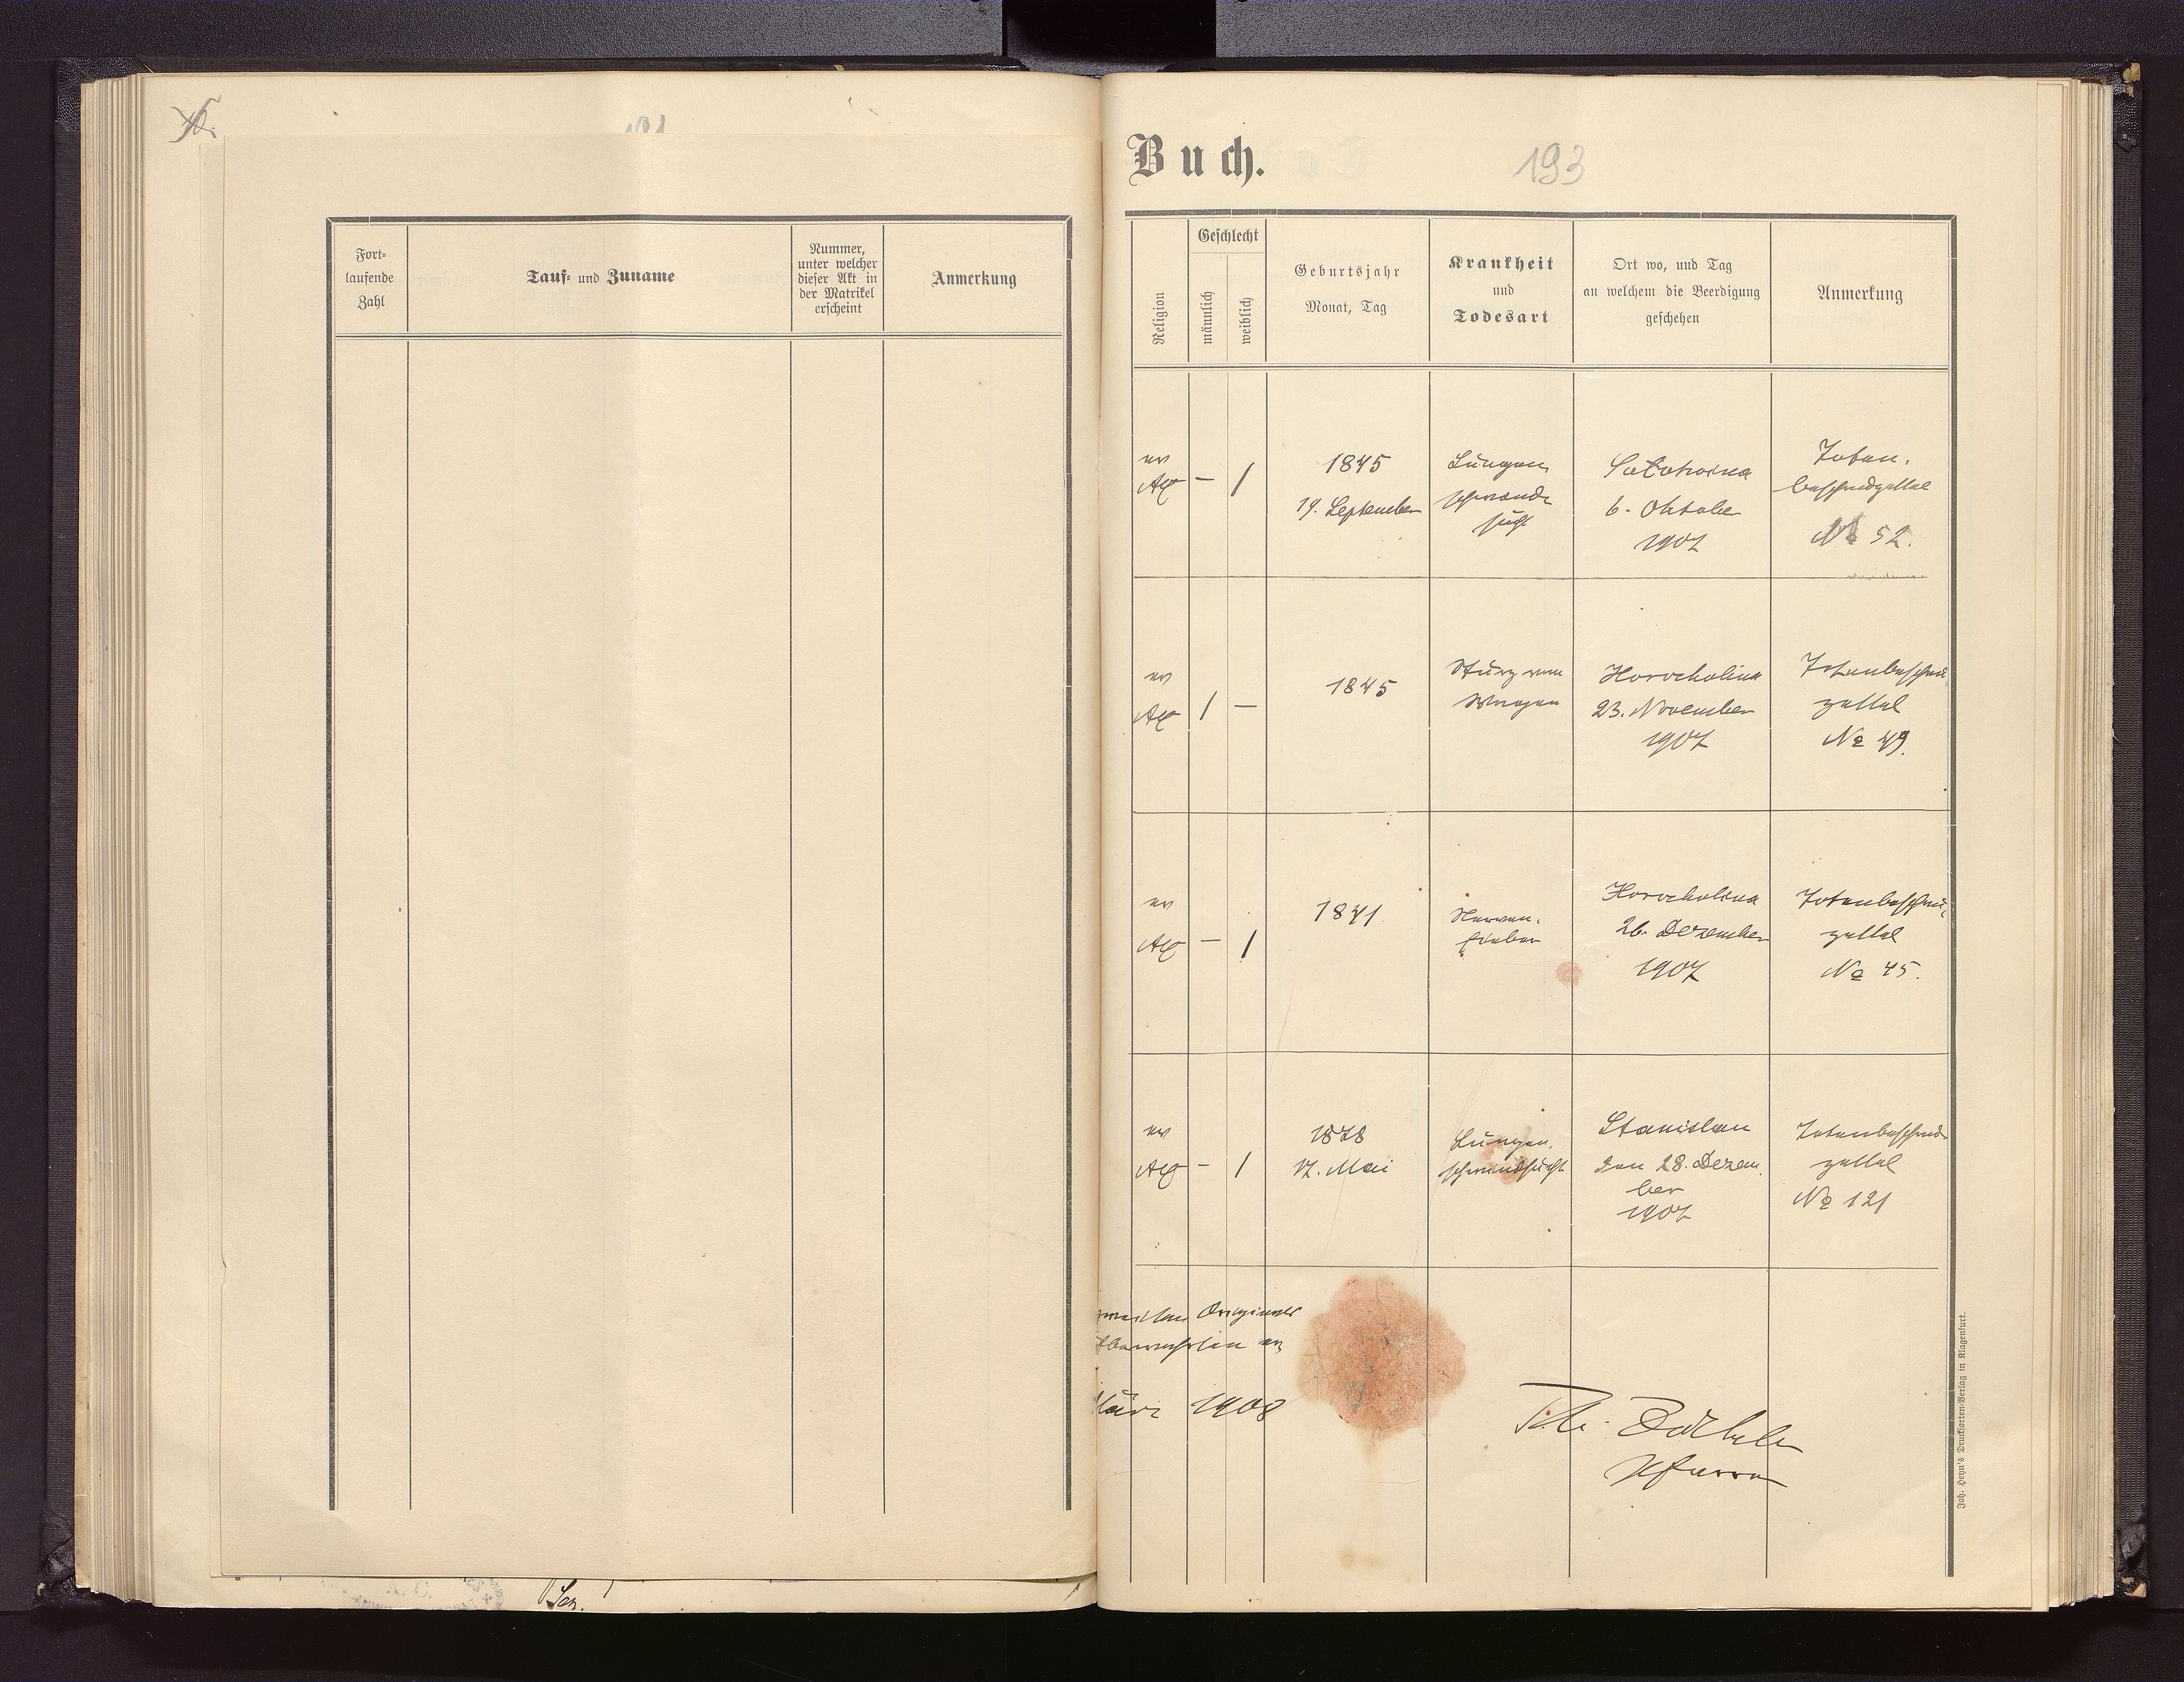 Fort-
laufende
Zahl
Tauf- und Zuname
Nummer,
unter welcher
dieser Akt in
der Matrikel
erscheint
Anmerkung
Buch.
193
Religion
Geschlecht
männlich
weiblich
Geburtsjahr
Monat, Tag
Krankheit
und
Todesart
Ort wo, und Tag
an welchem die Beerdigung
geschehen
Anmerkung
ev
AC
–
1
1845
19. September
Lungen
schwind
sucht
6. Oktober
1907
Toten.
beschauzettel
No 52.
ev
AC
1
–
1845
Sturz vom
Wagen
Horocholina
23. November
1907
Totenbeschau
zettel
No 49.
ev
AC
–
1
1841
Nerven.
fieber
Horocholina
26. Dezember
1907
Totenbeschau
zettel
No 45.
ev
AC
–
1
1878
17. Mai
Lungen.
schwindsucht
Stanislau
den 28. Dezem.
ber
1907
Totenbeschau
zettel
No 121
1908
Pfarrer
Joh. Heyn's Drucksorten-Verlag in Klagenfurt.